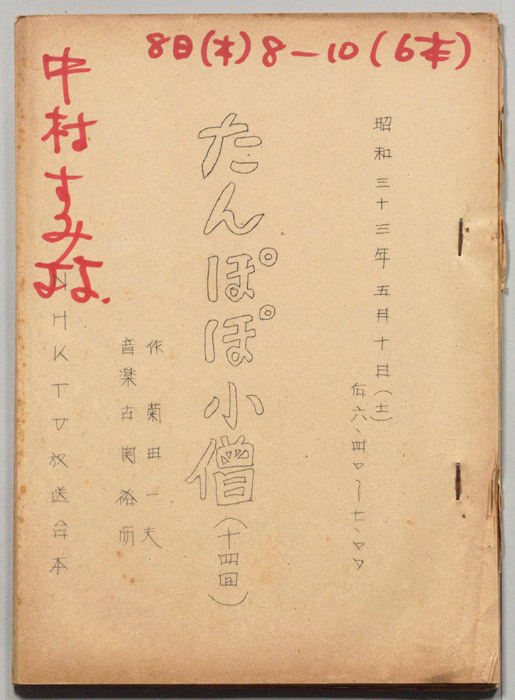 8日(木)8-10(6本)
昭和三十三年五月十日(土)
后六、四〇〜七、〇〇
たんぽぽ小僧(十四回)
作 菊田一夫
音楽 古関裕而
NHKTV放送台本
中村すみ